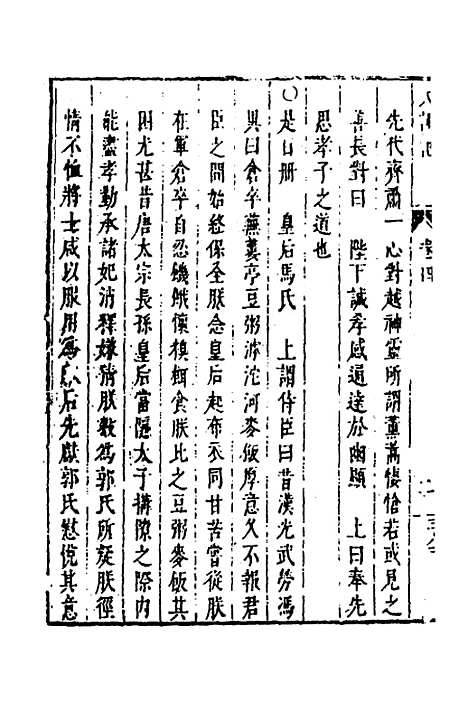 先代齋肅一心對越神靈所謂焄蒿悽愴若或見之
善長對曰　陛下誠孝感通達於幽顯　上曰奉先
思孝子之道也
○是日册　皇后馬氏　上謂侍臣曰昔漢光武勞馮
異曰倉卒蕪蔞亭豆粥滹沱河麥飯厚意久不報君
臣之間始終保全朕念皇后起布衣同甘苦嘗從朕
在軍倉卒自忍饑餓懷糗餌食朕比之豆粥麥飯其
困尤甚昔唐太宗長孫皇后當隱太子搆隙之際内
能盡孝勤承諸妃消釋嫌猜朕數爲郭氏所疑朕徑
情不恤將士咸以服用爲　后先獻郭氏慰悅其意
卷四